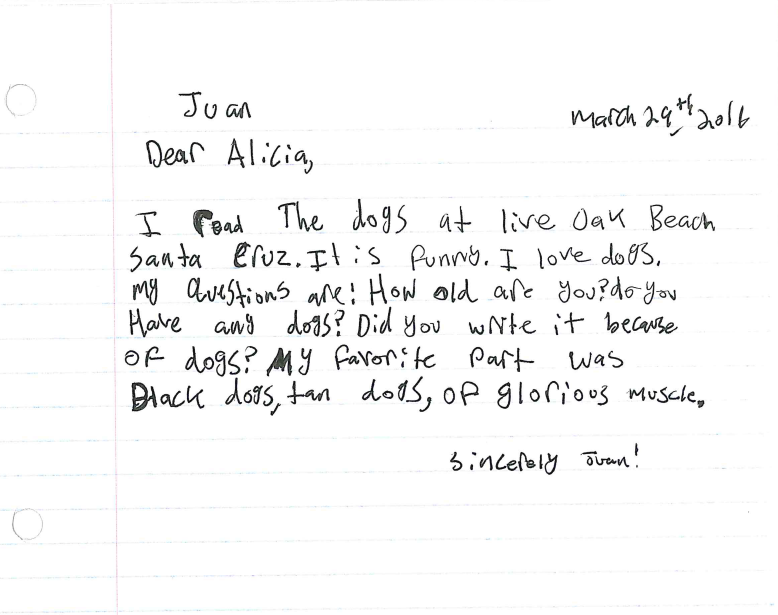 Juan
March 29th 2016
Dear Alicia,
I read The dogs at live Oak Beach
Santa Cruz. It is funny. I love dogs.
my Questions are! How old are you? do you
Have any dogs? Did you write it because
OF dogs? My favorite Part was
Black dogs, tan dogs, of glorious muscle.
Sincerely Juan!